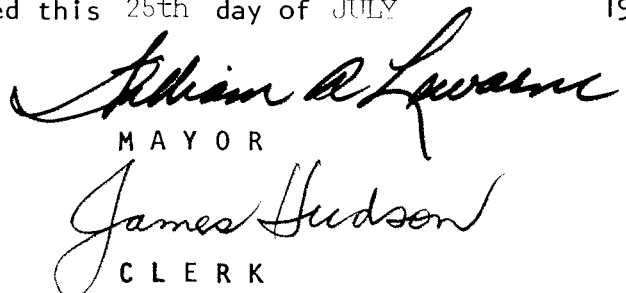 ed this 25th day of JULY 19
William A Lewarne
MAYOR
James Hudson
CLERK